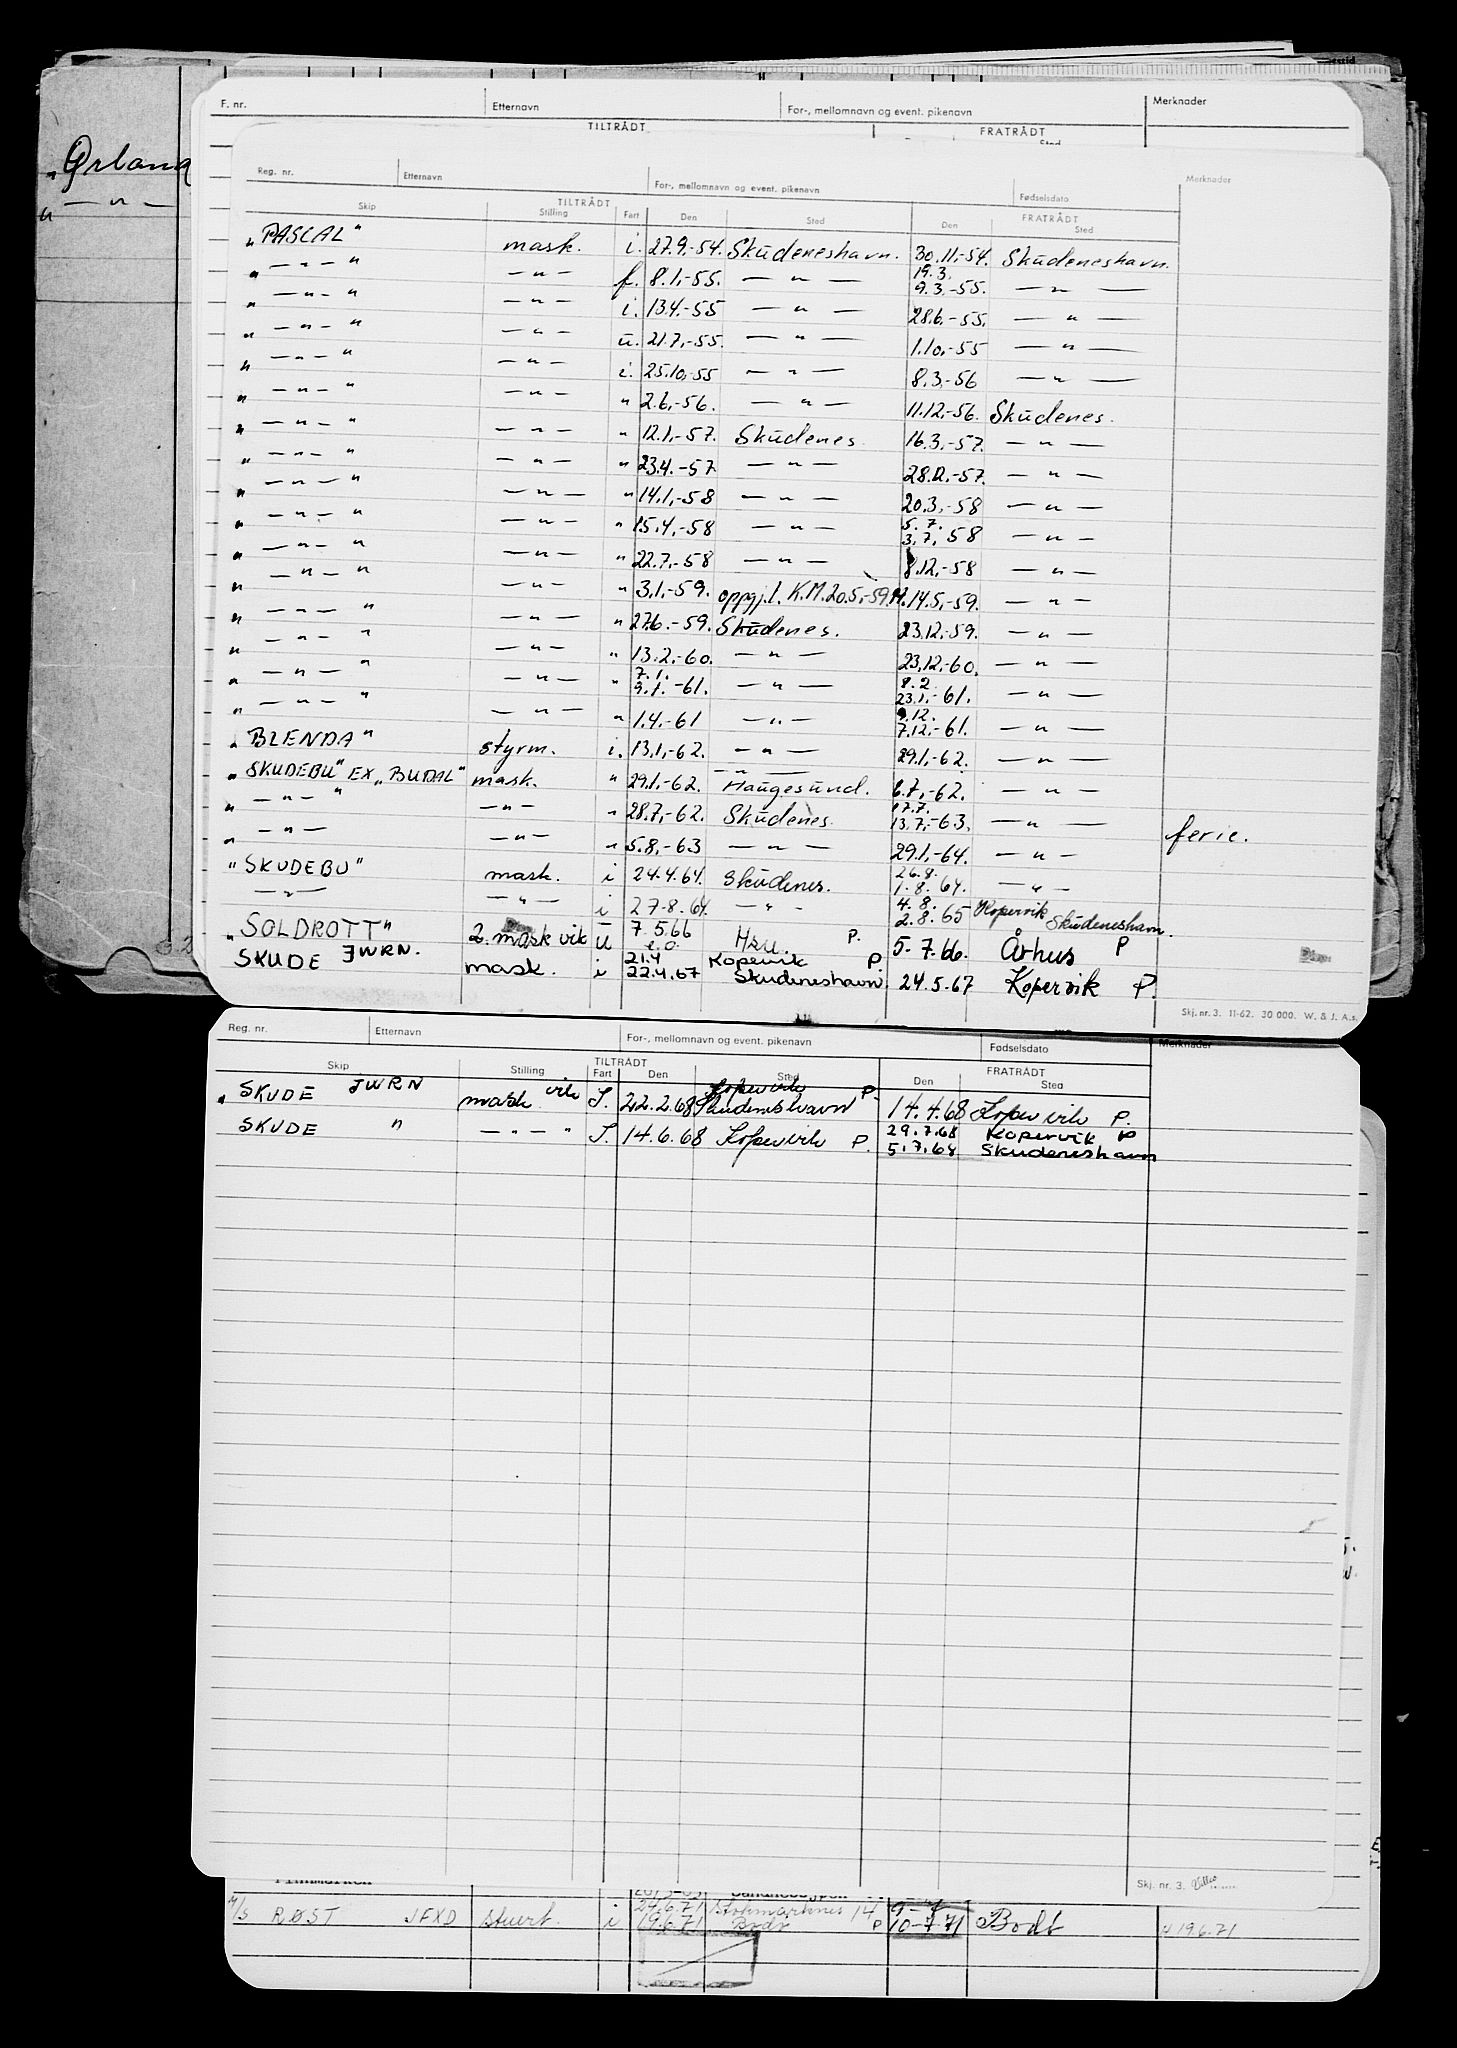 F. nr. Etternavn For-, mellomnavn og event. pikenavn Merknader
TILTRÅDT FRATRÅDT
"Ørland
" — " —
Reg. nr. Etternavn For-, mellomnavn og event. pikenavn Fødselsdato Merknader
TILTRÅDT FRATRÅDT
Skip Stilling Fart Den Sted Den Sted
"PASCAL" mask. i. 27.9.-54. Skudeneshavn. 30.11.-54. Skudeneshavn.
" — " — " — " — f. 8.1.-55. — " — 19.3. 9.3.-55. — " —
" — " — " — " — i. 13.4.-55 — " — 28.6.-55. — " —
" — " — " — " — u. 21.7.-55. — " — 1.10.-55 — " —
" — " — " — " — i. 25.10.-55 — " — 8.3.-56 — " —
" — " — " — " — " 2.6.-56. — " — 11.12.-56. Skudenes.
" — " — " — " — " 12.1.-57. Skudenes. 16.3.-57. — " —
" — " — " — " — " 23.4.-57 — " — 28.12.-57. — " —
" — " — " — " — " 14.1.-58 — " — 20.3.-58 — " —
" — " — " — " — " 15.4.-58 — " — 5.7. 3.7.58 — " —
" — " — " — " — " 22.7.-58 — " — 8.12.-58 — " —
" — " — " — " — " 3.1.-59. oppgj. f. K.M. 20.5.-59. M. 14.5.-59. — " —
" — " — " — " — " 27.6.-59. Skudenes. 23.12.-59. — " —
" — " — " — " — " 13.2.-60. — " — 23.12.-60. — " —
" — " — " — " — " 7.1. 9.1.-61. — " — 8.2 23.1.-61. — " —
" — " — " — " — " 1.4.-61 — " — 9.12. 7.12.-61. — " —
"BLENDA" styrm. i. 13.1.-62. — " — 29.1.-62. — " —
"SKUDEBU" EX "BUDAL" mask. " 29.1.-62. — " — Haugesund. 6.7.-62. — " —
" — " — " — " — " 28.7.-62. Skudenes. 17.7. 13.7.-63. — " — ferie.
" — " — — " — " 5.8.-63 — " — 29.1.-64. — " —
"SKUDEBU" mask. i 24.4.64. Skudenes. 26.8. 1.8.64. — " —
— " — — " — i 27-8.64. — " — 4.8. 2.8.65 Kopervik Skudeneshavn.
"SOLDROTT" 2. mask vik u 7.5.66 e.o. Hsu. P. 5.7.66. Århus P
SKUDE JWRN. mask. i 21.4 22.4.67 Kopervik P Skudeneshavn. 24.5.67 Kopervik P.
Skj. nr. 3. 11-62. 30 000. W. & J. A.s.
Reg. nr. Etternavn For-, mellomnavn og event. pikenavn Fødselsdato Merknader
TILTRÅDT FRATRÅDT
Skip Stilling Fart Den Sted Den Sted
SKUDE JWRN mask vik I. 22.2.68 Kopervik P. Skudeneshavn 14.4.68 Kopervik P.
SKUDE " — " — " I. 14.6.68 Kopervik P. 29.7.68 Kopervik P
5.7.68 Skudeneshavn
Skj. nr. 3.
M/S RØST JFXD stuert. i 24.6.71 Stokmarknes
19.6.71 Bodø P 10-7 71 Bodø 19.6.71